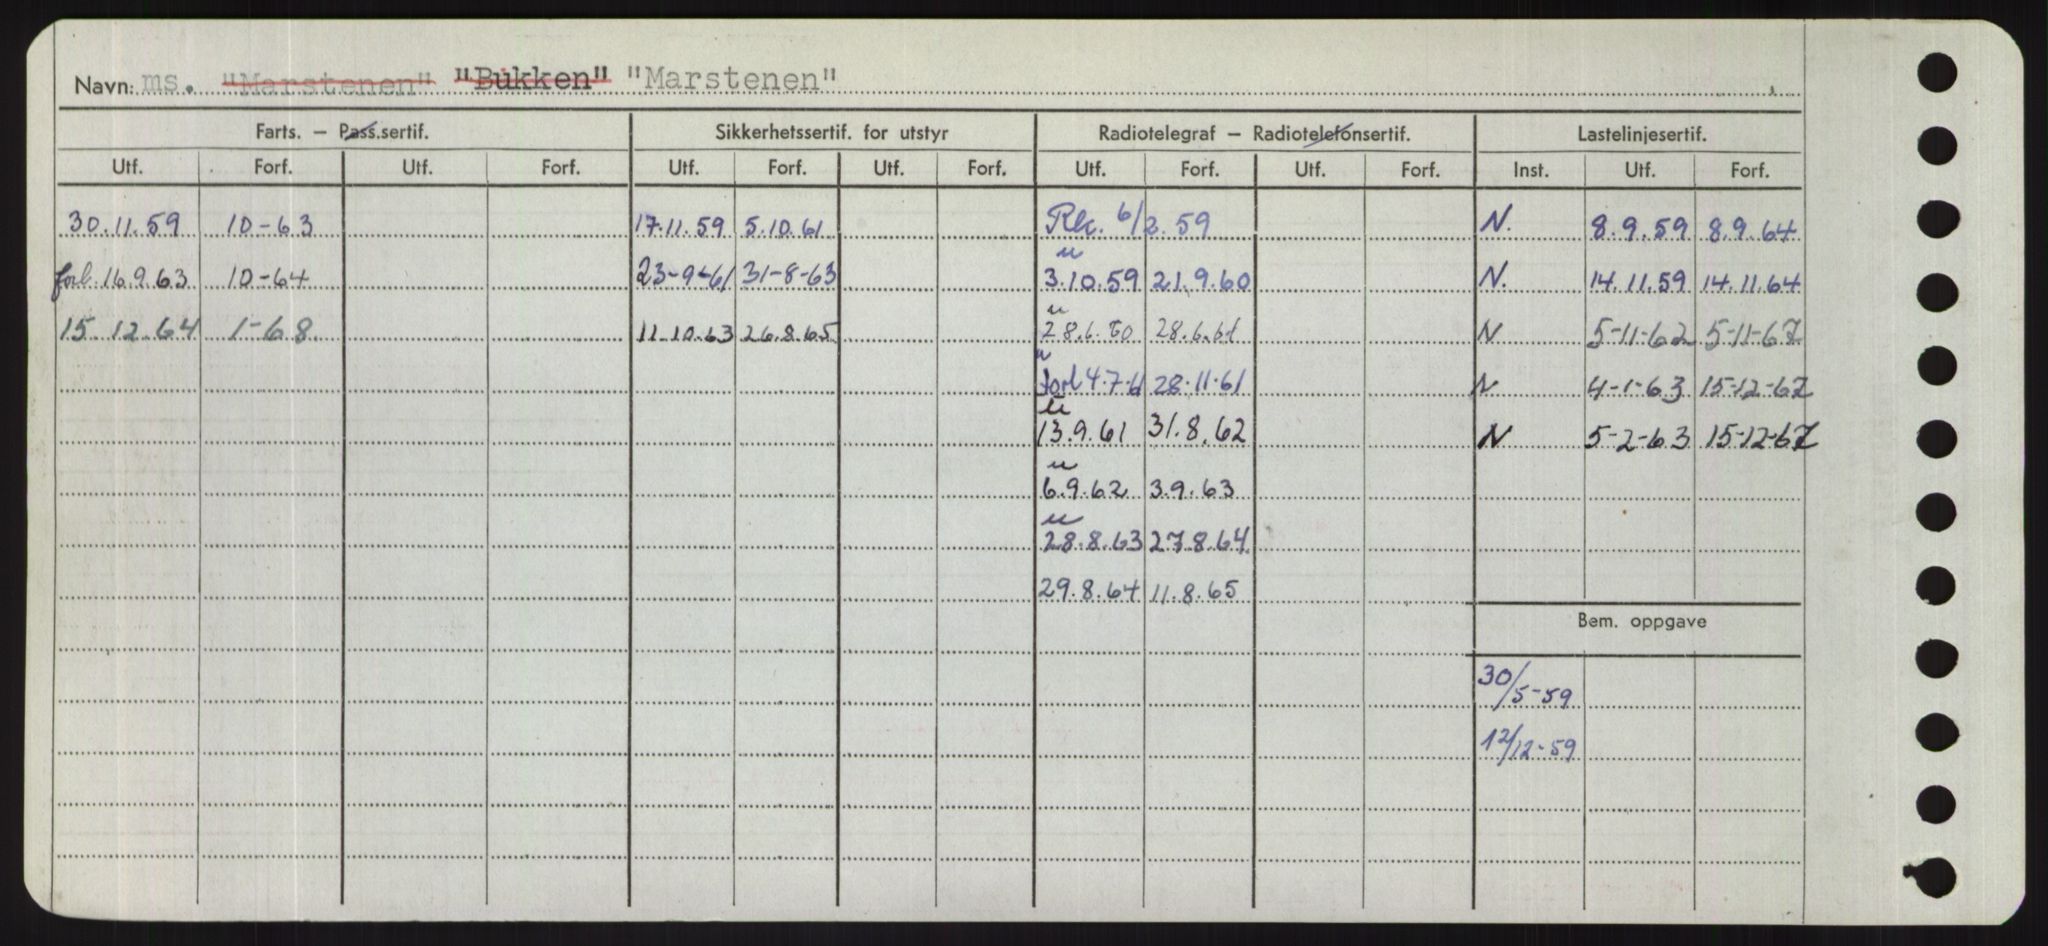 Navn: ms. "Marstenen" "Bukken" "Marstenen"
Farts. – Pass.sertif. Sikkerhetssertif. for utstyr Radiotelegraf – Radiotelefonsertif. Lastelinjesertif.
Utf. Forf. Utf. Forf. Utf. Forf. Utf. Forf. Utf. Forf. Utf. Forf. Inst. Utf. Forf.
30.11.59 10-63 17.11.59 5.10.61 6/2.59 N. 8.9.59 8.9.64
u
forl. 16.9.63 10-64 23-9-61 31-8-63 3.10.59 21.9.60 N. 14.11.59 14.11.64
u
15.12.64 1-68. 11.10.63 26.8.65 28.6.60 28.6.61 N 5-11-62 5-11-67
u
forl 4.7.61 28.11.61 N 4-1-63 15-12-67
u
13.9.61 31.8.62 N 5-2-63 15-12-67
u
6.9.62 3.9.63
u
28.8.63 27.8.64
29.8.64 11.8.65
Bem. oppgave
30/5-59
12/12-59